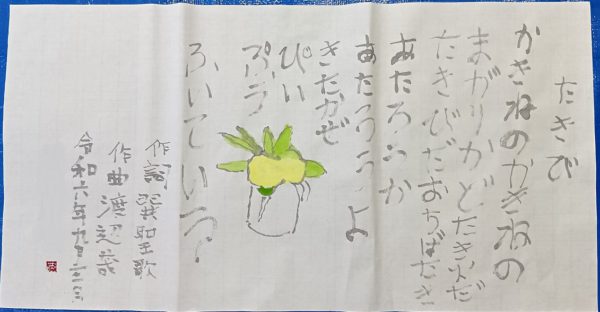 たきび
かきねのかきねの
まがりかどたきびだ
たきびだおちばたき
あたろうか
あたろうよ
きたかぜ
ぴい
ぷう
ふいている
作詞 巽聖歌
作曲 渡辺茂
令和六年